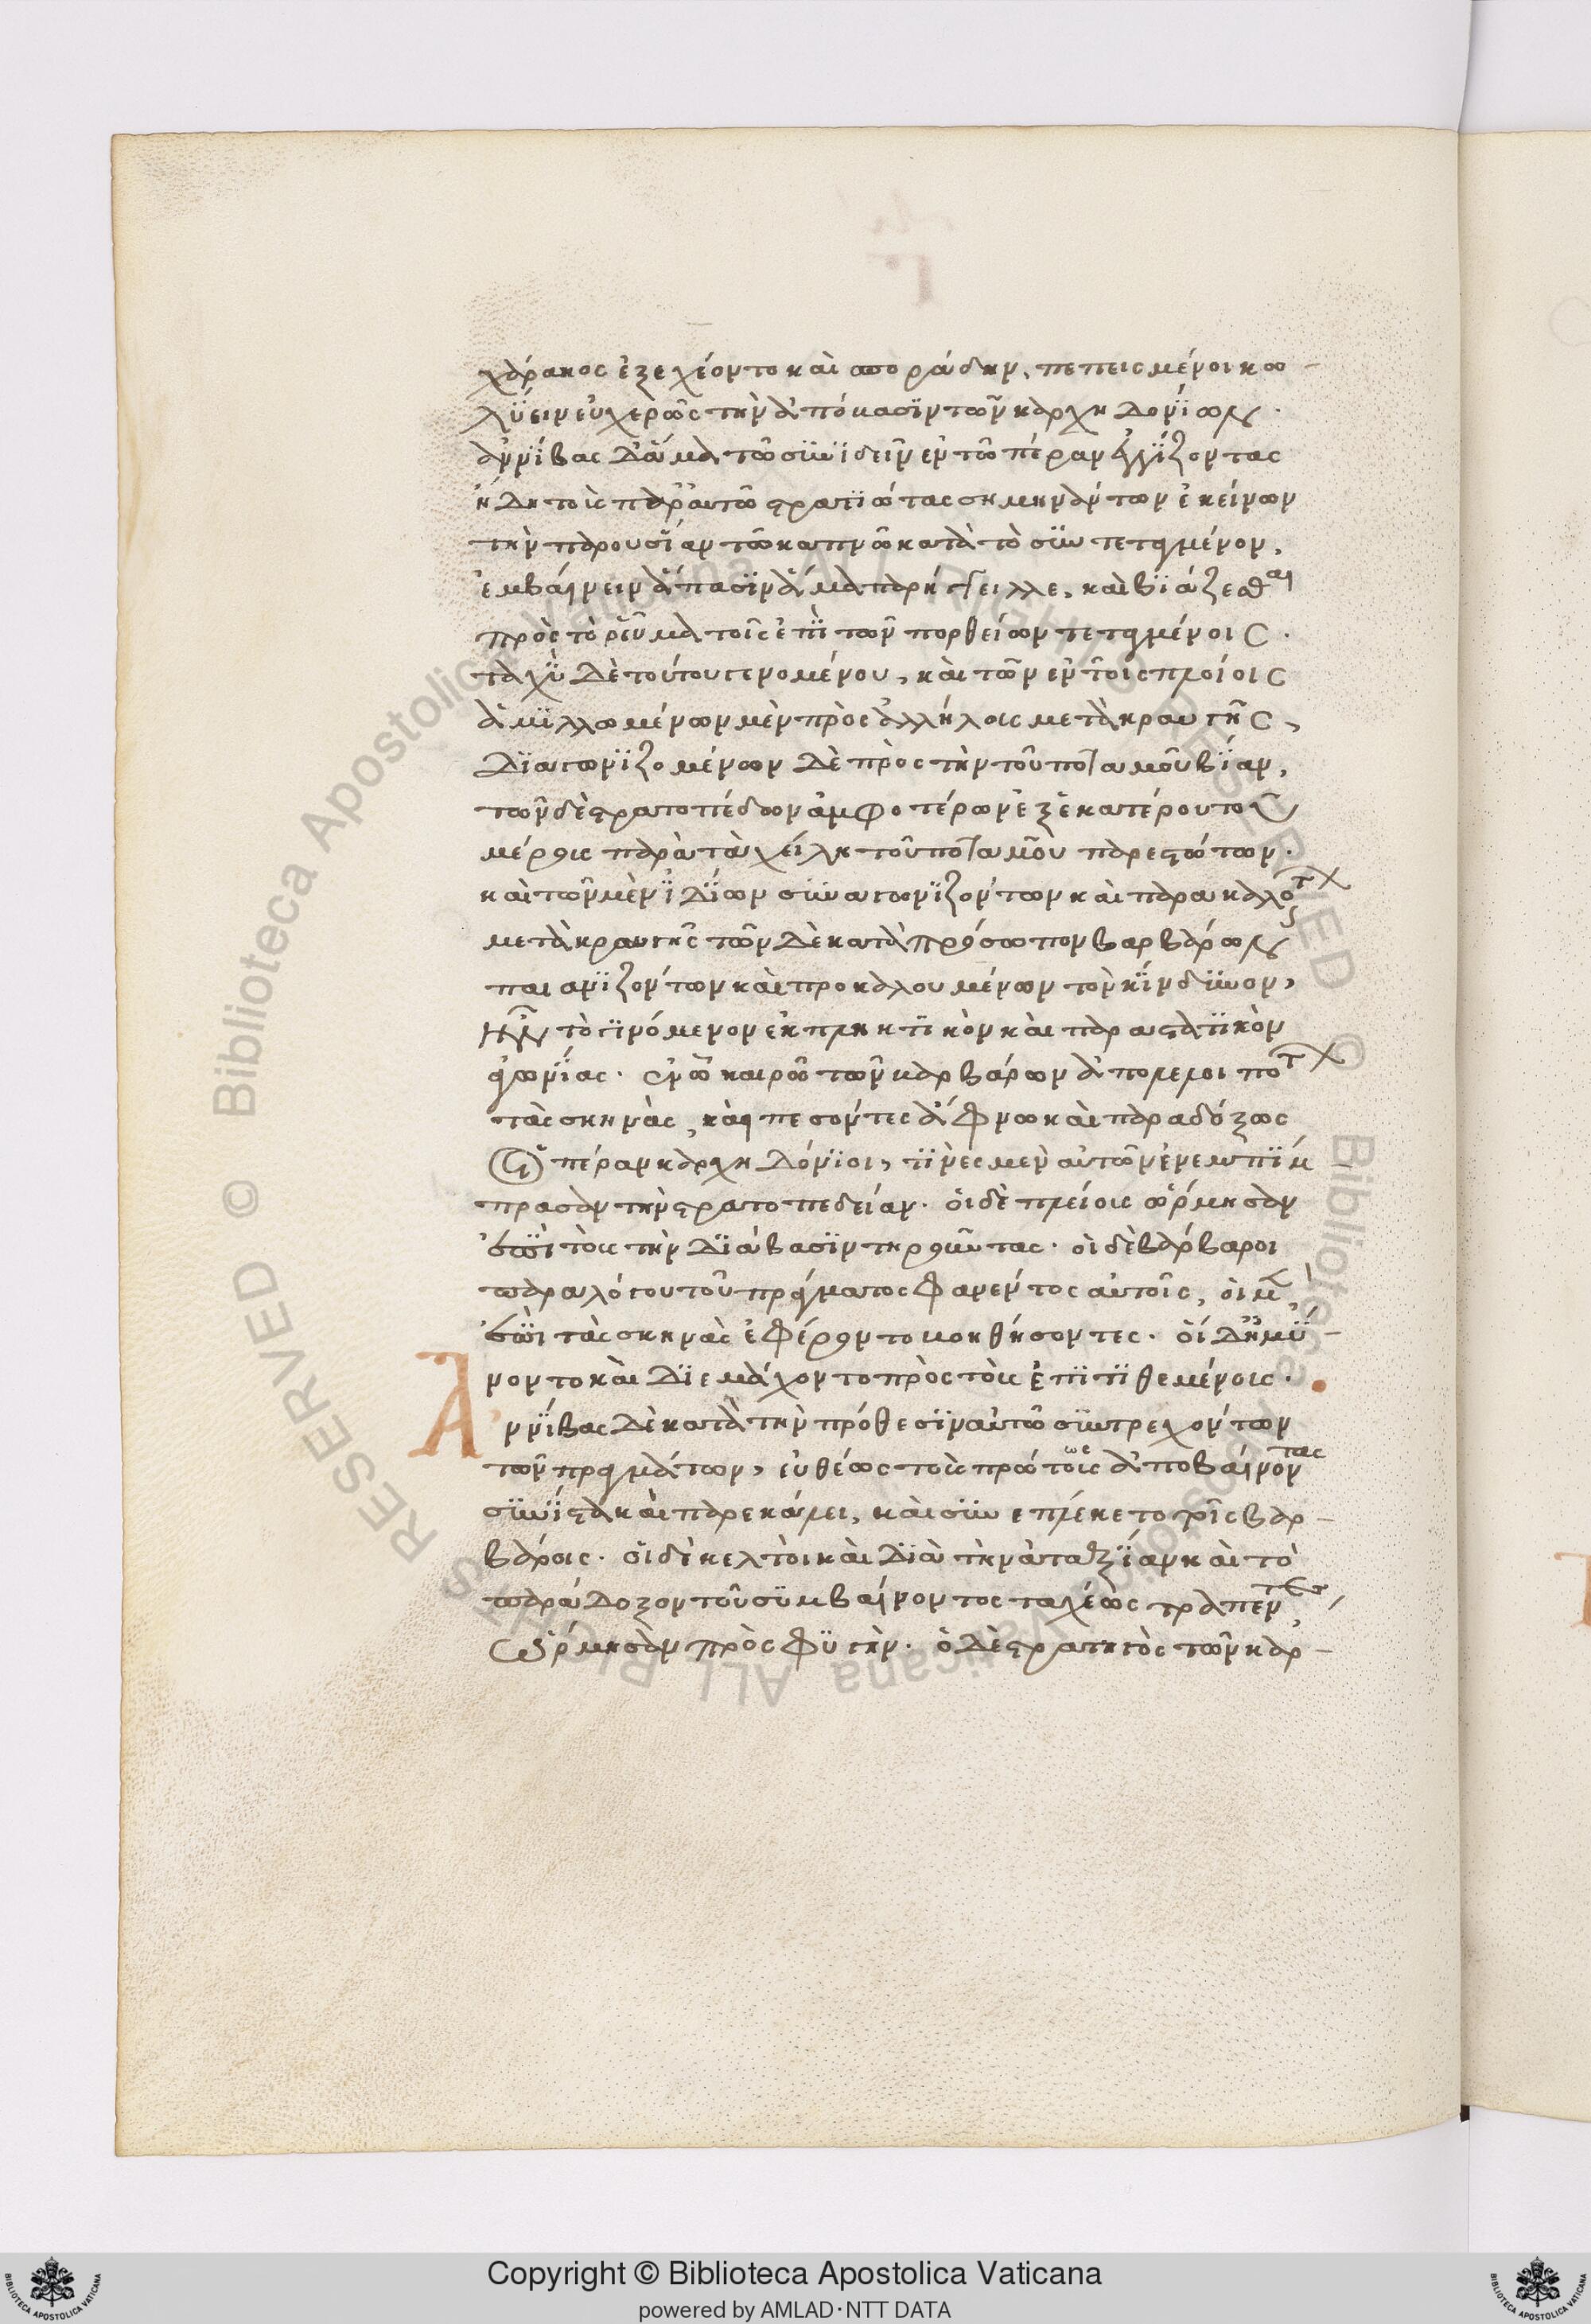 χάρακος ἐξεχέοντο καὶ σποράδην, πεπεισμένοι κω-
λύειν εὐχερῶς τὴν ἀπόβασιν τῶν καρχηδονίων.
ἀννίβας δ' ἅμα τῶ συνιδεῖν ἐν τῶ πέραν ἐγγίζοντας
ἤδη τοὺς παρ' αὐτῶ στρατιώτας σημηνάντων ἐκείνων
τὴν παρουσίαν τῶ καπνῶ κατὰ τὸ συντεταγμένον,
ἐμβαίνειν ἅπασιν ἅμα παρήγγειλλε, καὶ βιάζεσθαι
πρὸς τὸ ῥεῦμα τοῖς ἐπὶ τῶν πορθείων τεταγμένοις.
ταχὺ δὲ τούτου γενομένου, καὶ τῶν ἐν τοῖς πλοίοις
ἁμιλλωμένων μὲν πρὸς ἀλλήλους μετὰ κραυγῆς,
διαγωνιζομένων δὲ πρὸς τὴν τοῦ ποταμοῦ βίαν,
τῶν δὲ στρατοπέδων ἀμφοτέρων ἐξ ἑκατέρου τοῦ
μέρους παρὰ τὰ χείλη τοῦ ποταμοῦ παρεστώτων.
καὶ τῶν μὲν ἰδίων συναγωνιζόντων καὶ παρακαλούντων
μετὰ κραυγῆς τῶν δὲ κατὰ πρόσωπον βαρβάρων
παιανιζόντων καὶ προκαλουμένων τὸν κίνδυνον,
ἦν τὸ γινόμενον ἐκπληκτικὸν καὶ παραστατικὸν
ἀγωνίας. ἐν ὧ καιρῶ τῶν βαρβάρων ἀπολελοιπότων
τὰς σκηνὰς, καὶ πεσόντες ἄφνω καὶ παραδόξως
οἱ πέραν καρχηδόνιοι, τινὲς μὲν αὐτῶν ἐνεμπίμ-
πρασαν τὴν στρατοπεδείαν. οἱ δὲ πλείους ὥρμησαν
ἐπὶ τοὺς τὴν διάβασιν τηροῦντας. οἱ δὲ βάρβαροι
παραλόγου τοῦ πράγματος φανέντος αὐτοῖς, οἱ μὲν
ἐπὶ τὰς σκηνὰς ἐφέροντο βοηθήσοντες. οἱ δ' ἠμύ-
νοντο καὶ διεμάχοντο πρὸς τοὺς ἐπιτιθεμένους.
Ἀννίβας δὲ κατὰ τὴν πρόθεσιν αὐτῶ συντρεχόντων
τῶν πραγμάτων, εὐθέως τοὺς πρώτους ἀποβαίνοντας
συνίστα καὶ παρεκάλει, καὶ συνεπλέκετο τοῖς βαρ-
βάροις. οἱ δὲ κελτοὶ καὶ διὰ τὴν ἀταξίαν καὶ τὸ
παράδοξον τοῦ συμβαίνοντος ταχέως τραπέντες,
ὥρμησαν πρὸς φυγὴν. ὁ δὲ στρατηγὸς τῶν καρ-